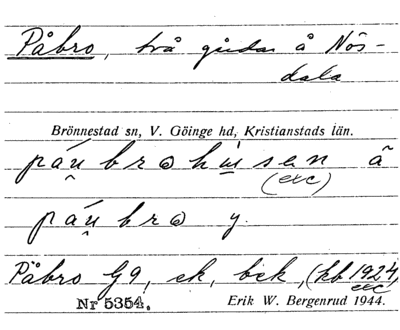 Påbro, två gårdar å Nös-
dala
Brönnestad sn, V. Göinge hd, Kristianstads län.
páu̯brohu̯sen ä
(exc)
páu̯bro y.
Påbro Gg, ek, bek, (hb 1924,
exc
Nr 5354. Erik W. Bergenrud 1944.